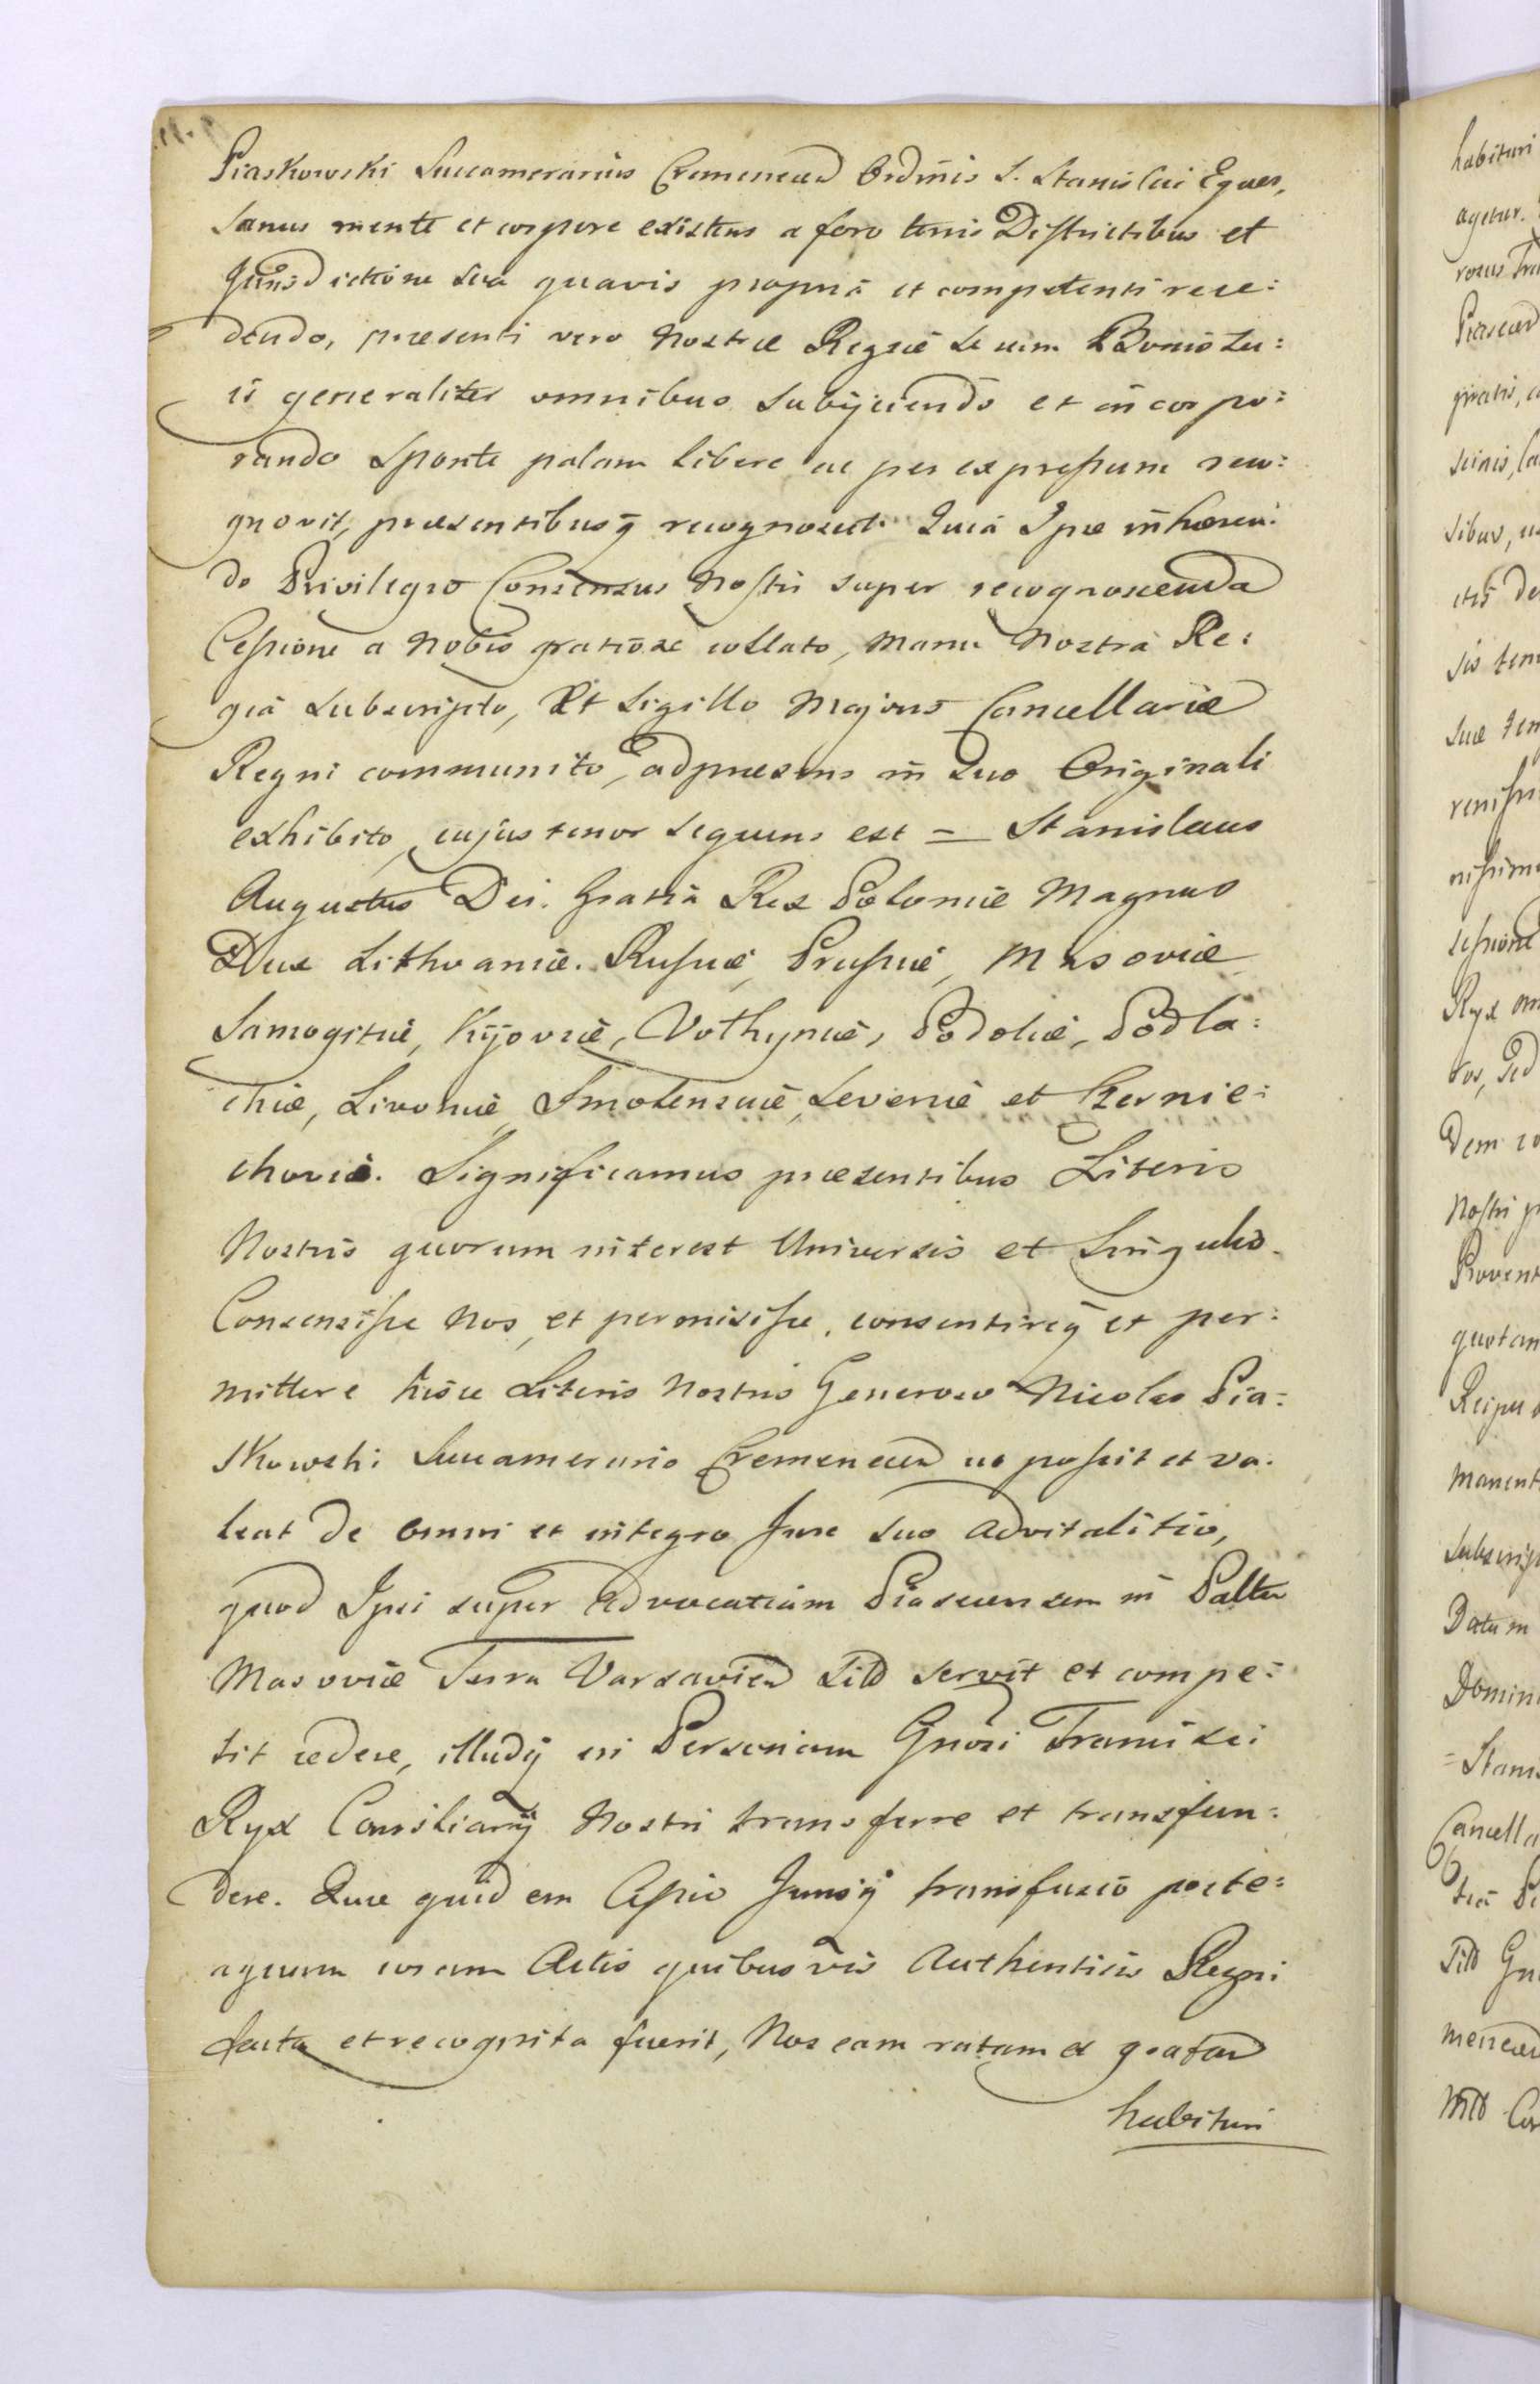 Piaskowski Succamerarius Cremenecen Ordinis S. Stanislai Eques,
Sanus mente et corpore existens a foro terris Districtibus et
Jurisdictione sua quavis propriâ et competenti rece:
dendo, præsenti vero Nostræ Regiæ se cum Bonis Su:
is generaliter omnibus subijciendo et incorpo:
rando sponte palam libere ac per expressum reco:
gnovit, præsentibusq recognoscit. Quia Ipse inhæren:
do Privilegio Consensus Nostri super recognoscenda
Cessione a Nobis gratiose collato, Manu Nostrâ Re:
giâ subscripto, Et Sigillo Majoris Cancellariæ
Regni communito, ad præsens in suo Originali
exhibito, cujus tenor sequens est = Stanislaus
Augustus Dei Gratiâ Rex Poloniæ Magnus
Dux Lithvaniæ. Russiæ, Prussiæ, Masoviæ
Samogitiæ, Kijoviæ, Volhyniæ, Podoliæ, Podla:
chiæ, Livoniæ, Smolensciæ, Severiæ et Czernie:
choviæ. Significamus præsentibus Literis
Nostris quorum interest Universis et Singulis.
Consensisse Nos, et permisisse, consentireq et per:
mittere hisce Literis Nostris Generoso Nicolao Pia:
skowski Succamerario Cremenecen ut possit et va:
leat de omni et integro Jure suo advitalitio,
quod Ipsi super Advocatiam Piasecensem in Palttu
Masoviæ Terra Varsavien Sitd servit et compe:
tit cedere, illudq in Personam Gnosi Francisci
Ryx Consiliarij Nostri transferre et transfun:
dere. Quæ quidem Cessio Jurisq transfusio poste:
aquam coram Actis quibusvis Authenticis Regni
facta et recognita fuerit, Nos eam ratam et gratam
habituri